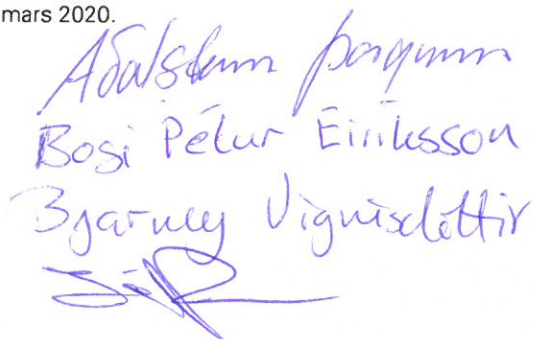 mars 2020.
Aðalsteinn Þorgeirsson
Bogi Pétur Eiríksson
Bjarney Vignisdóttir